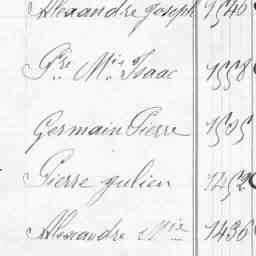 Alexandre Joseph 1546
Pre Mie Isaac 1558
Germain Pierre 1505
Pierre Julien 1452
Alexandre Mie 1436